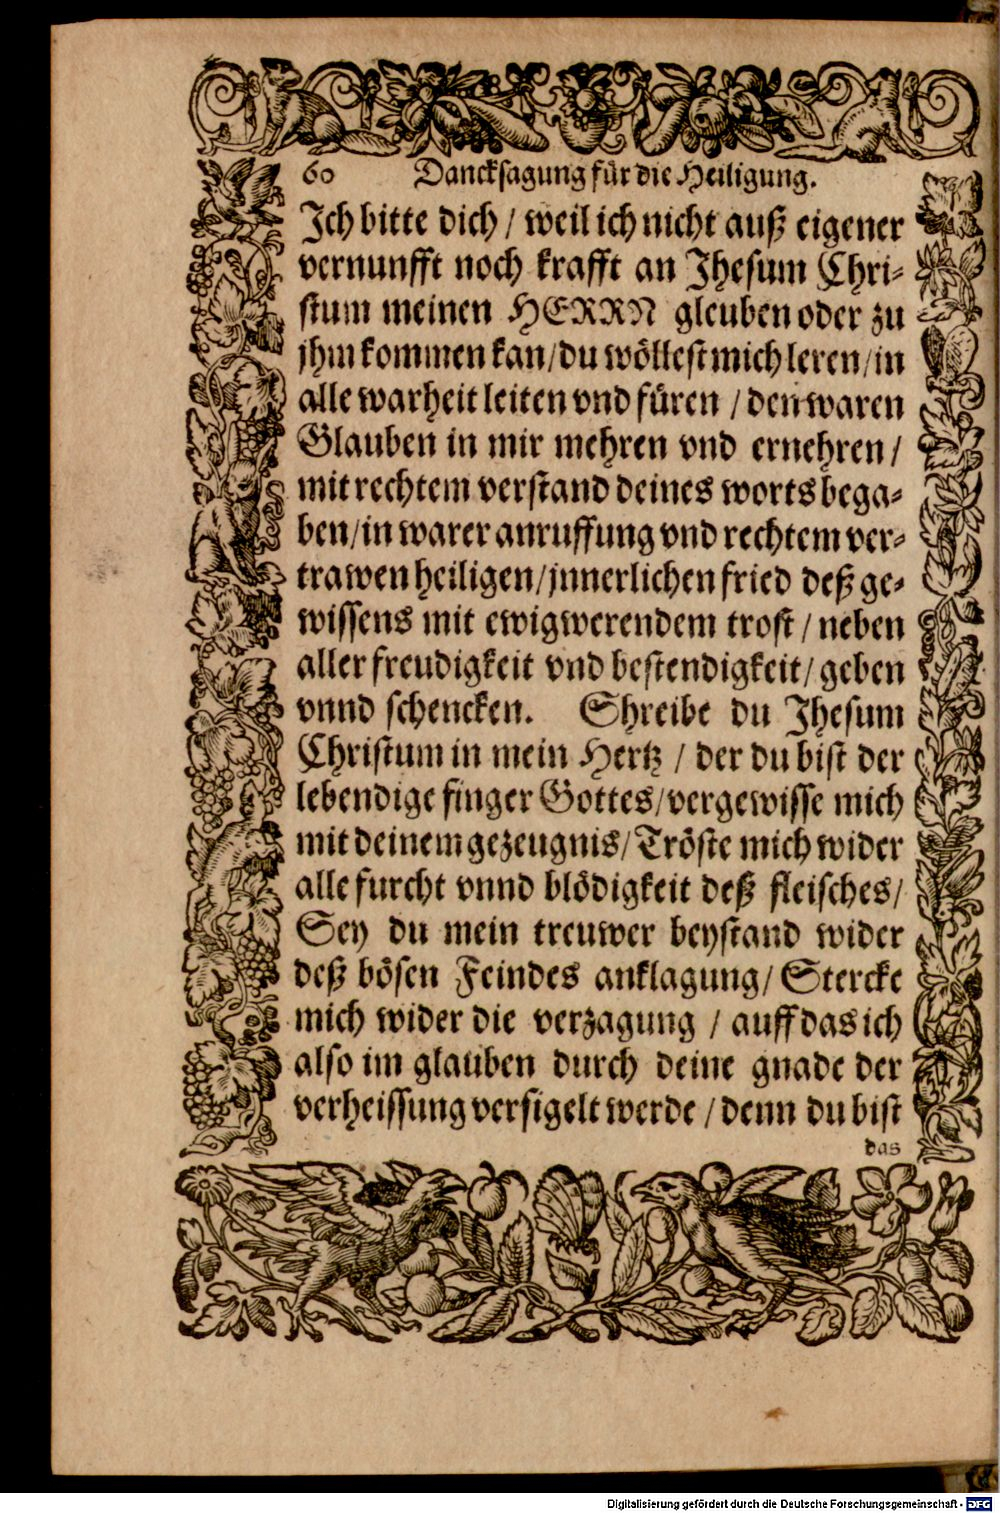 60 Dancksagung für die Heiligung.
Ich bitte dich / weil ich nicht auß eigener
vernunfft noch krafft an Jhesum Chri-
stum meinen HERRN gleuben oder zu
jhm kommen kan / du wöllest mich leren / in
alle warheit leiten vnd füren / den waren
Glauben in mir mehren vnd ernehren /
mit rechtem verstand deines worts bega-
ben / in warer anruffung vnd rechtem ver-
trawen heiligen / jnnerlichen fried deß ge-
wissens mit ewigwerendem trost / neben
aller freudigkeit vnd bestendigkeit / geben
vnnd schencken. Shreibe du Jhesum
Christum in mein Hertz / der du bist der
lebendige finger Gottes / vergewisse mich
mit deinem gezeugnis / Tröste mich wider
alle furcht vnnd blödigkeit deß fleisches /
Sey du mein treuwer beystand wider
deß bösen Feindes anklagung / Stercke
mich wider die verzagung / auff das ich
also im glauben durch deine gnade der
verheissung versigelt werde / denn du bist
das
Digitalisierung gefördert durch die Deutsche Forschungsgemeinschaft - DFG